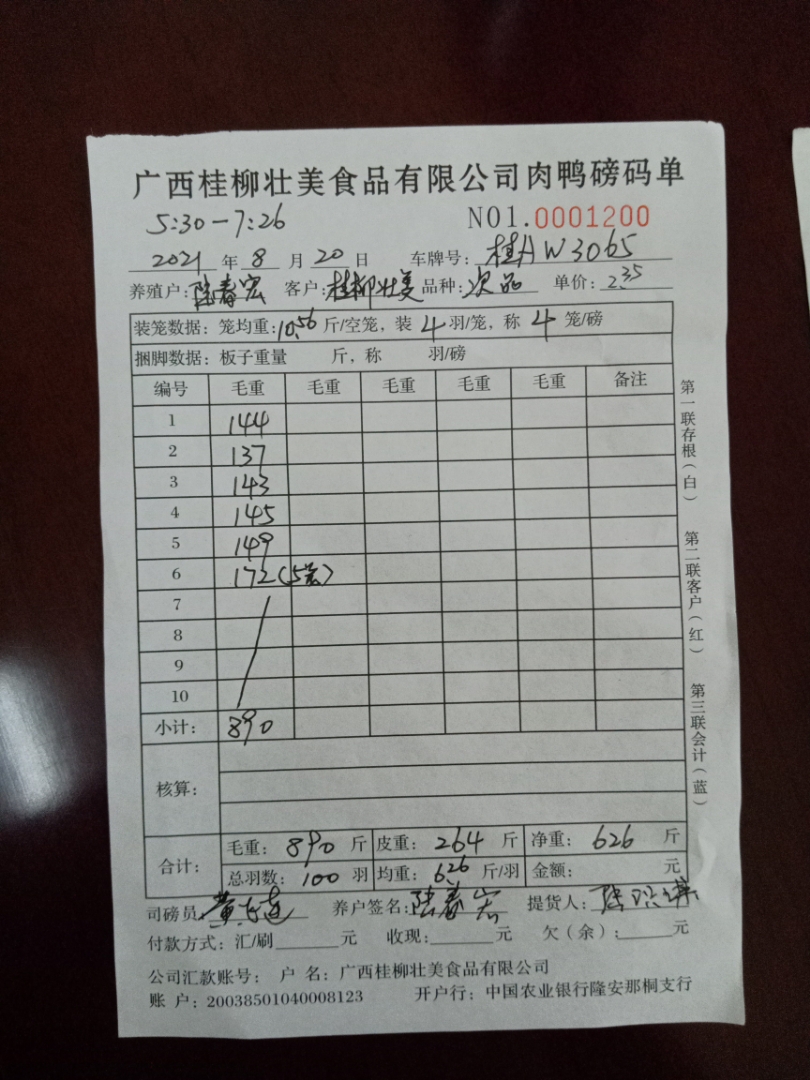 广西桂柳壮美食品有限公司肉鸭磅码单
5:30-7:26 NO1.0001200
2021 年 8 月 20 日 车牌号: 桂A W3065
养殖户: 陆春宏 客户: 桂柳壮美 品种: 次品 单价: 2.35
装笼数据: 笼均重: 10.56 斤/空笼, 装 4 羽/笼, 称 4 笼/磅
捆脚数据: 板子重量 斤, 称 羽/磅
编号 毛重 毛重 毛重 毛重 毛重 备注
1 144
2 137
3 143
4 145
5 149
6 172 (5笼)
7
8
9
10
小计: 890
核算:
合计: 毛重: 890 斤 皮重: 264 斤 净重: 626 斤
总羽数: 100 羽 均重: 6.26 斤/羽 金额: 元
司磅员 黄 养户签名: 陆春宏 提货人: 陆
付款方式: 汇/刷 元 收现: 元 欠(余): 元
公司汇款账号: 户 名: 广西桂柳壮美食品有限公司
账 户: 20038501040008123 开户行: 中国农业银行隆安那桐支行
第一联存根(白) 第二联客户(红) 第三联会计(蓝)